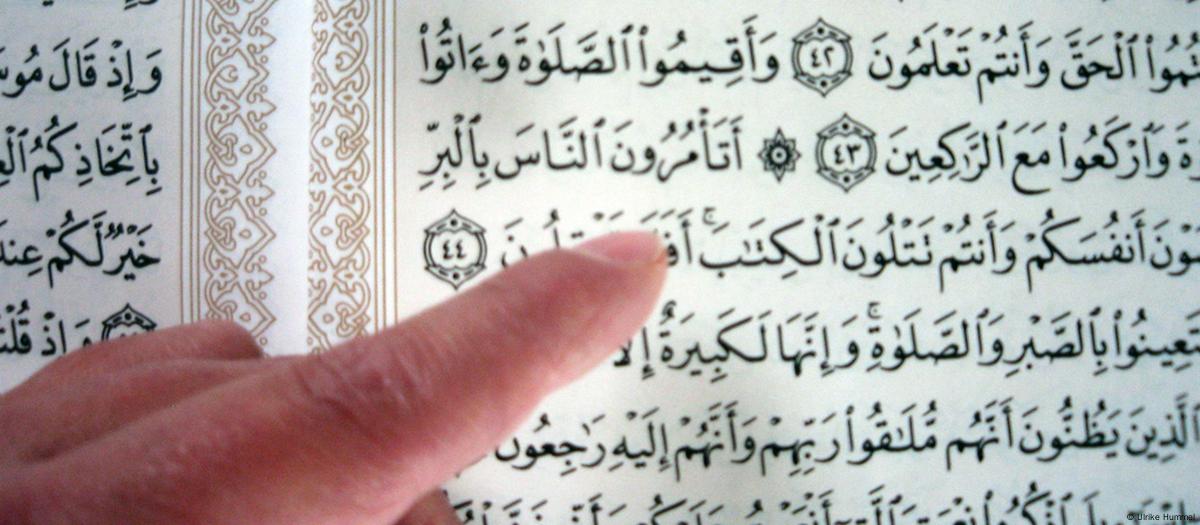 تُمُوا۟ ٱلْحَقَّ وَأَنتُمْ تَعْلَمُونَ ٤٢ وَأَقِيمُوا۟ ٱلصَّلَوٰةَ وَءَاتُوا۟
وَٱرْكَعُوا۟ مَعَ ٱلرَّٰكِعِينَ ٤٣ ۞ أَتَأْمُرُونَ ٱلنَّاسَ بِٱلْبِرِّ
وْنَ أَنفُسَكُمْ وَأَنتُمْ تَتْلُونَ ٱلْكِتَٰبَ ۚ ٤٤
تَعِينُوا۟ بِٱلصَّبْرِ وَٱلصَّلَوٰةِ ۚ وَإِنَّهَا لَكَبِيرَةٌ
ٱلَّذِينَ يَظُنُّونَ أَنَّهُم مُّلَٰقُوا۟ رَبِّهِمْ وَأَنَّهُمْ إِلَيْهِ رَٰجِعُونَ
وَإِذْ قَالَ مُوسَ
بِٱتِّخَاذِكُمُ ٱلْعِ
خَيْرٌ لَّكُمْ عِندَ
وَإِذْ قُلْتُ
© Ulrike Hummel